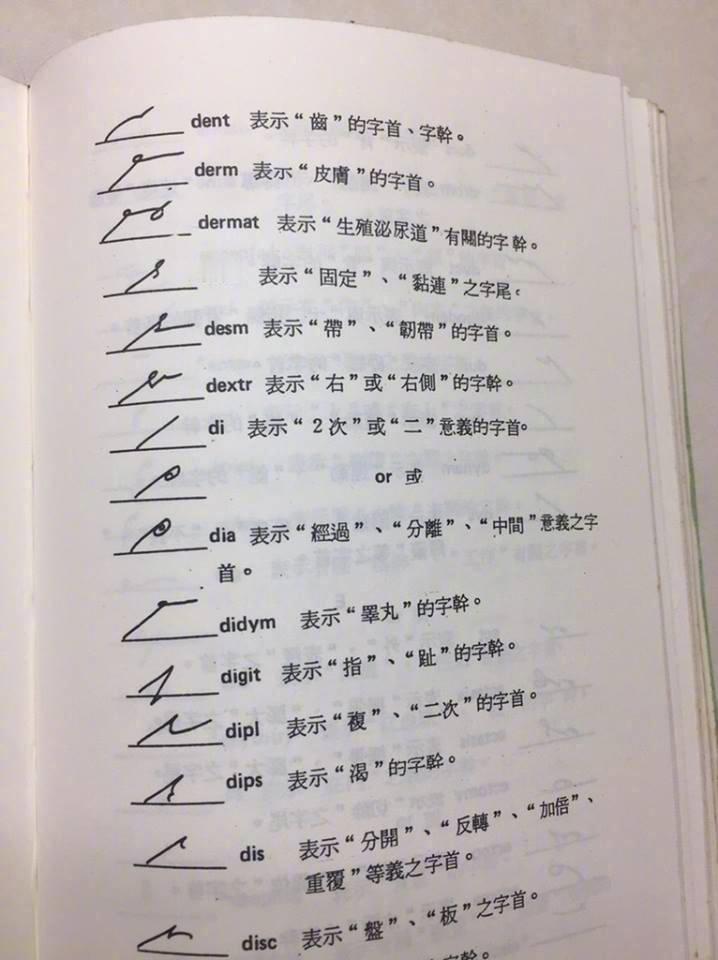 dent 表示“齒”的字首、字幹。
derm 表示“皮膚”的字首。
dermat 表示“生殖泌尿道”有關的字幹。
表示“固定”、“黏連”之字尾。
desm 表示“帶”、“韌帶”的字首。
dextr 表示“右”或“右側”的字幹。
di 表示“2次”或“二”意義的字首。
or 或
dia 表示“經過”、“分離”、“中間”意義之字
首。
didym 表示“睪丸”的字幹。
digit 表示“指”、“趾”的字幹。
dipl 表示“複”、“二次”的字首。
dips 表示“渴”的字幹。
dis 表示“分開”、“反轉”、“加倍”、
重覆”等義之字首。
disc 表示“盤”、“板”之字首。
字幹。